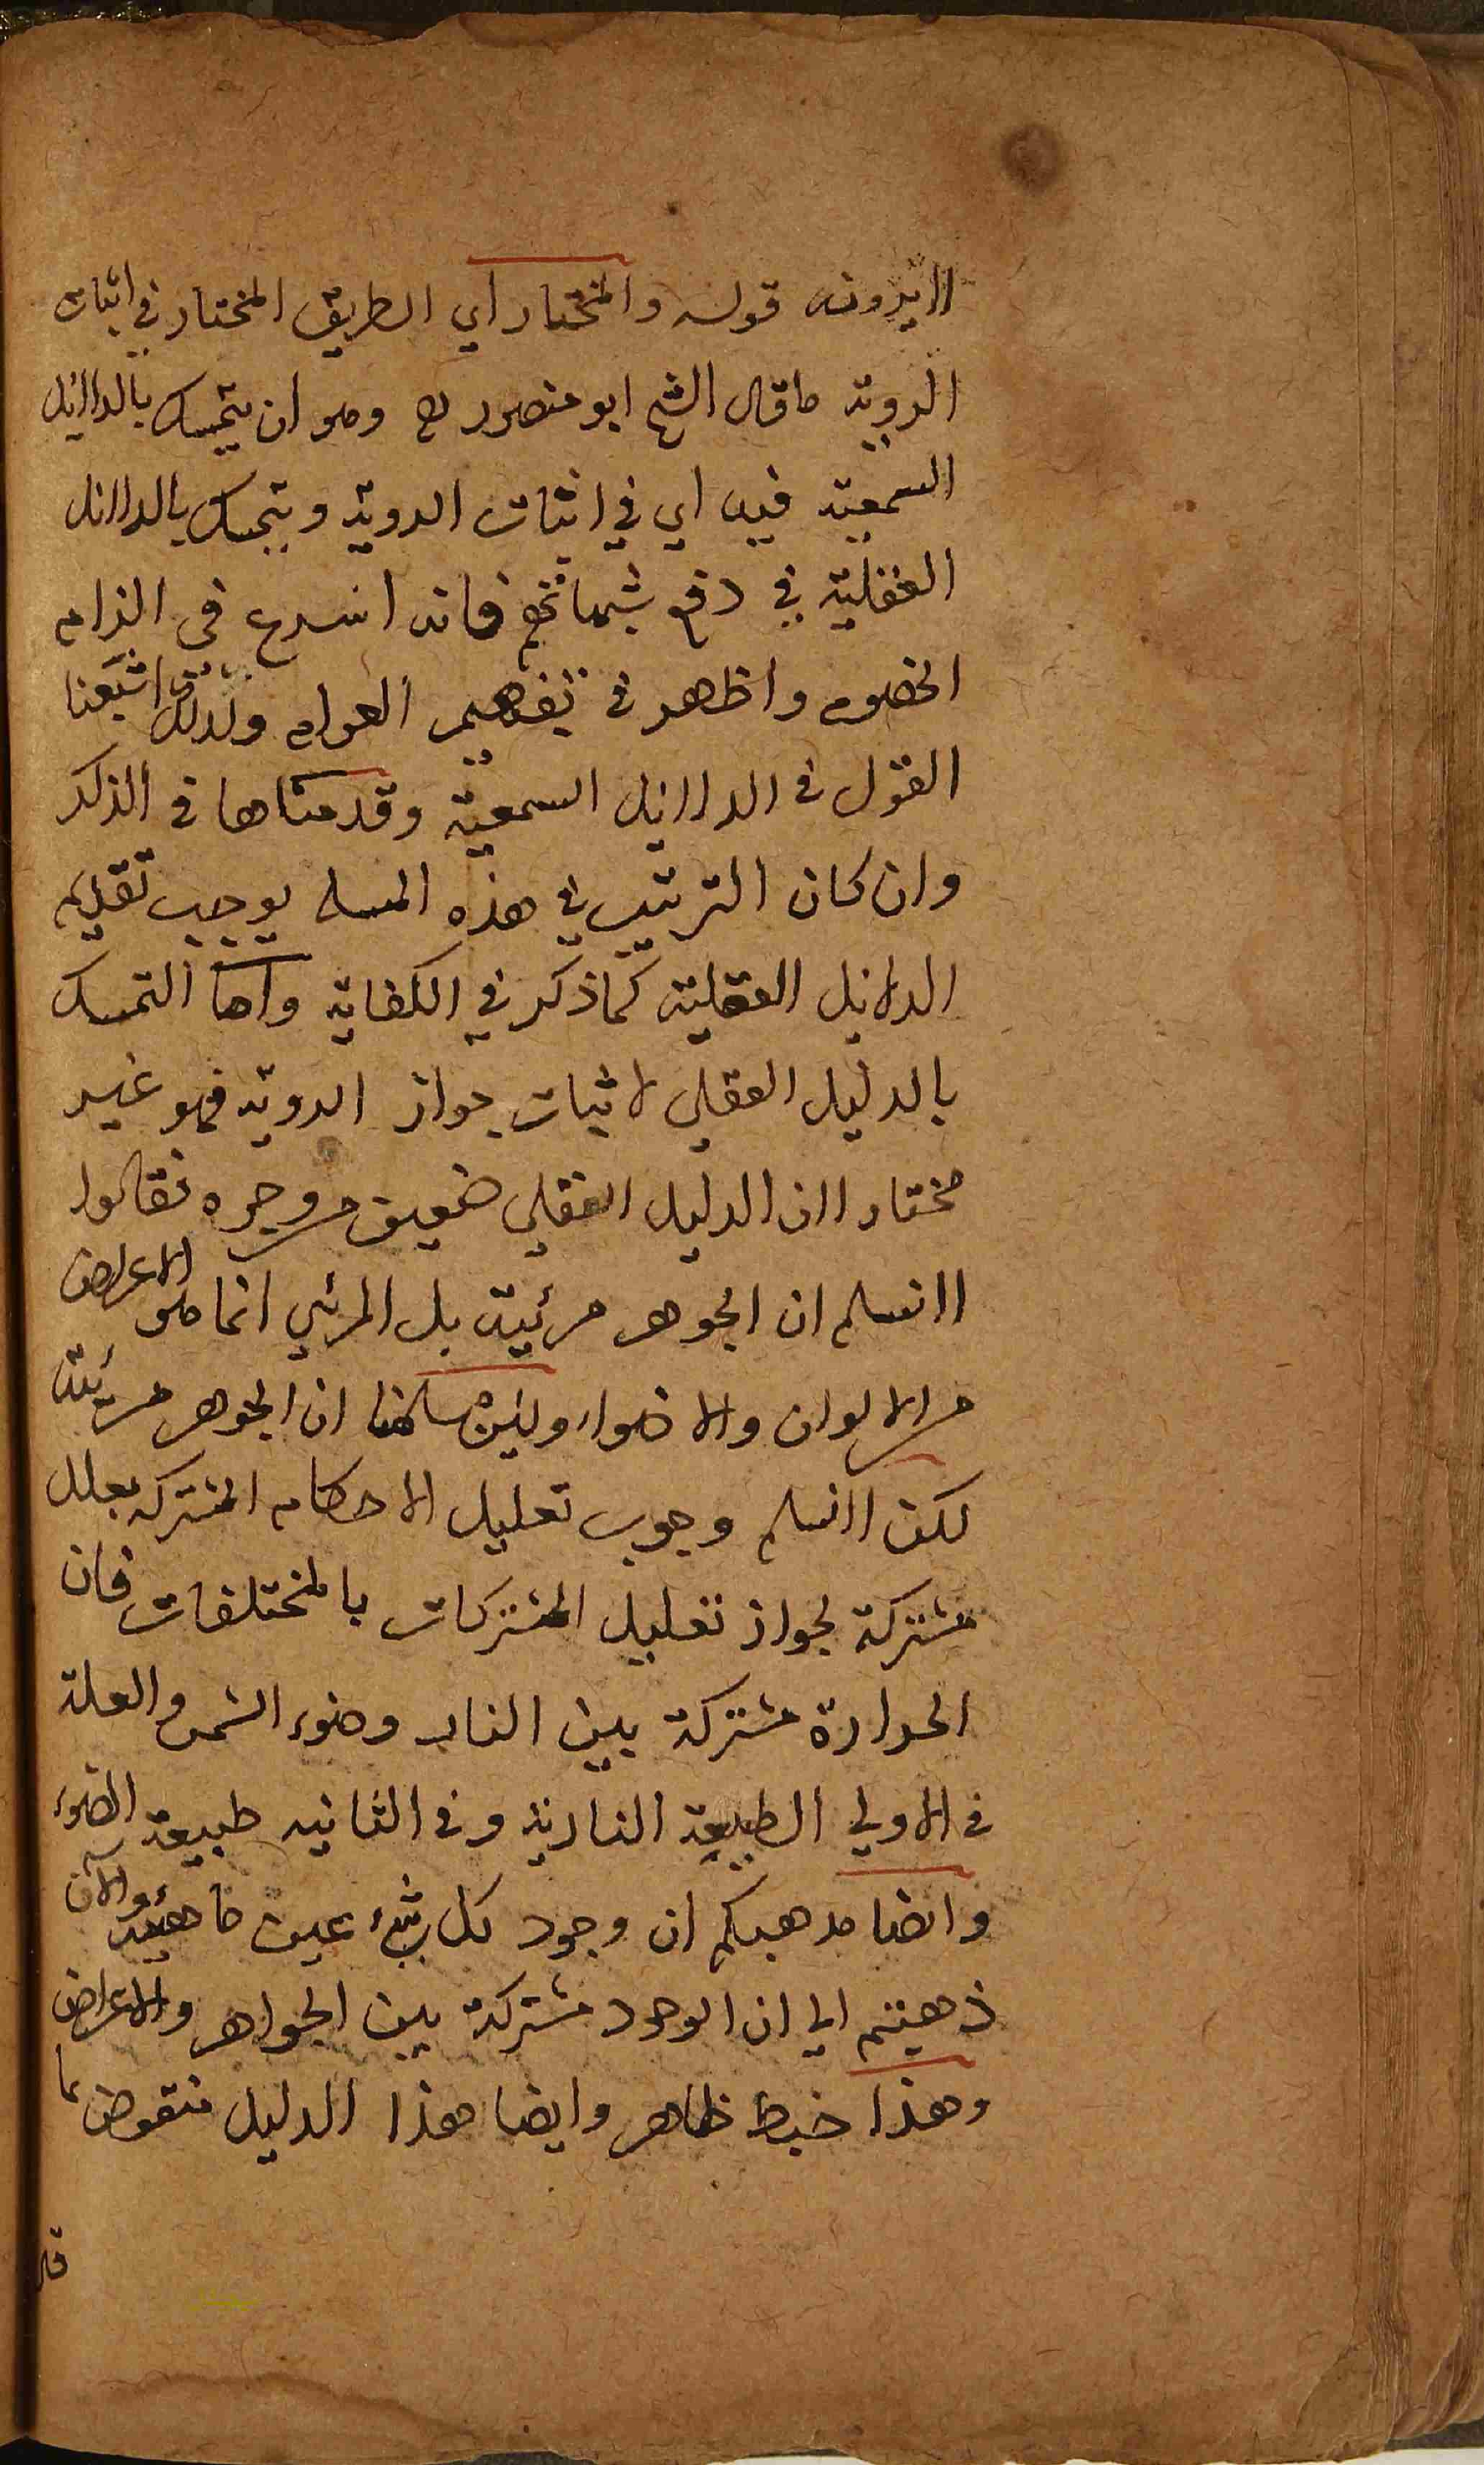 لا يرونه قوله والمختار اي الطريق المختار في اثبات
الروية ما قال الشيخ ابو منصور رح وهو ان يتمسك بالدلايل
السمعية فيه اي في اثبات الروية ويتمسك بالدلائل
العقلية في دفع شبهاتهم فانه اسرع في الزام
الخصوم واظهر في تفهيم العوام ولذلك اشبعنا
القول في الدلايل السمعية وقدمناها في الذكر
وان كان الترتيب في هذه المسله يوجب تقديم
الدلايل العقلية كما ذكر في الكفاية واما التمسك
بالدليل العقلي لاثبات جواز الروية فهو غير
مختار لان الدليل العقلي ضعيف من وجوه نقالوا
لا نسلم ان الجوهر مرئية بل المرئي انما هو الاعراض
من الالوان والاضواء ولئن سلمنا ان الجوهر مرئية
لكن لا نسلم وجوب تعليل الاحكام المشتركة بعلل
مشتركة لجواز تعليل المشتركات بالمختلفات فان
الحرارة مشتركة بين النار وضوء الشمس والعلة
في الاولي الطبيعة النارية وفي الثانيه طبيعة الضوء
وايضا مذهبكم ان وجود كل شيء عين ماهيته والآن
ذهبتم الي ان الوجود مشتركة بين الجواهر والاعراض
وهذا خبط ظاهر وايضا هذا الدليل منقوض بما